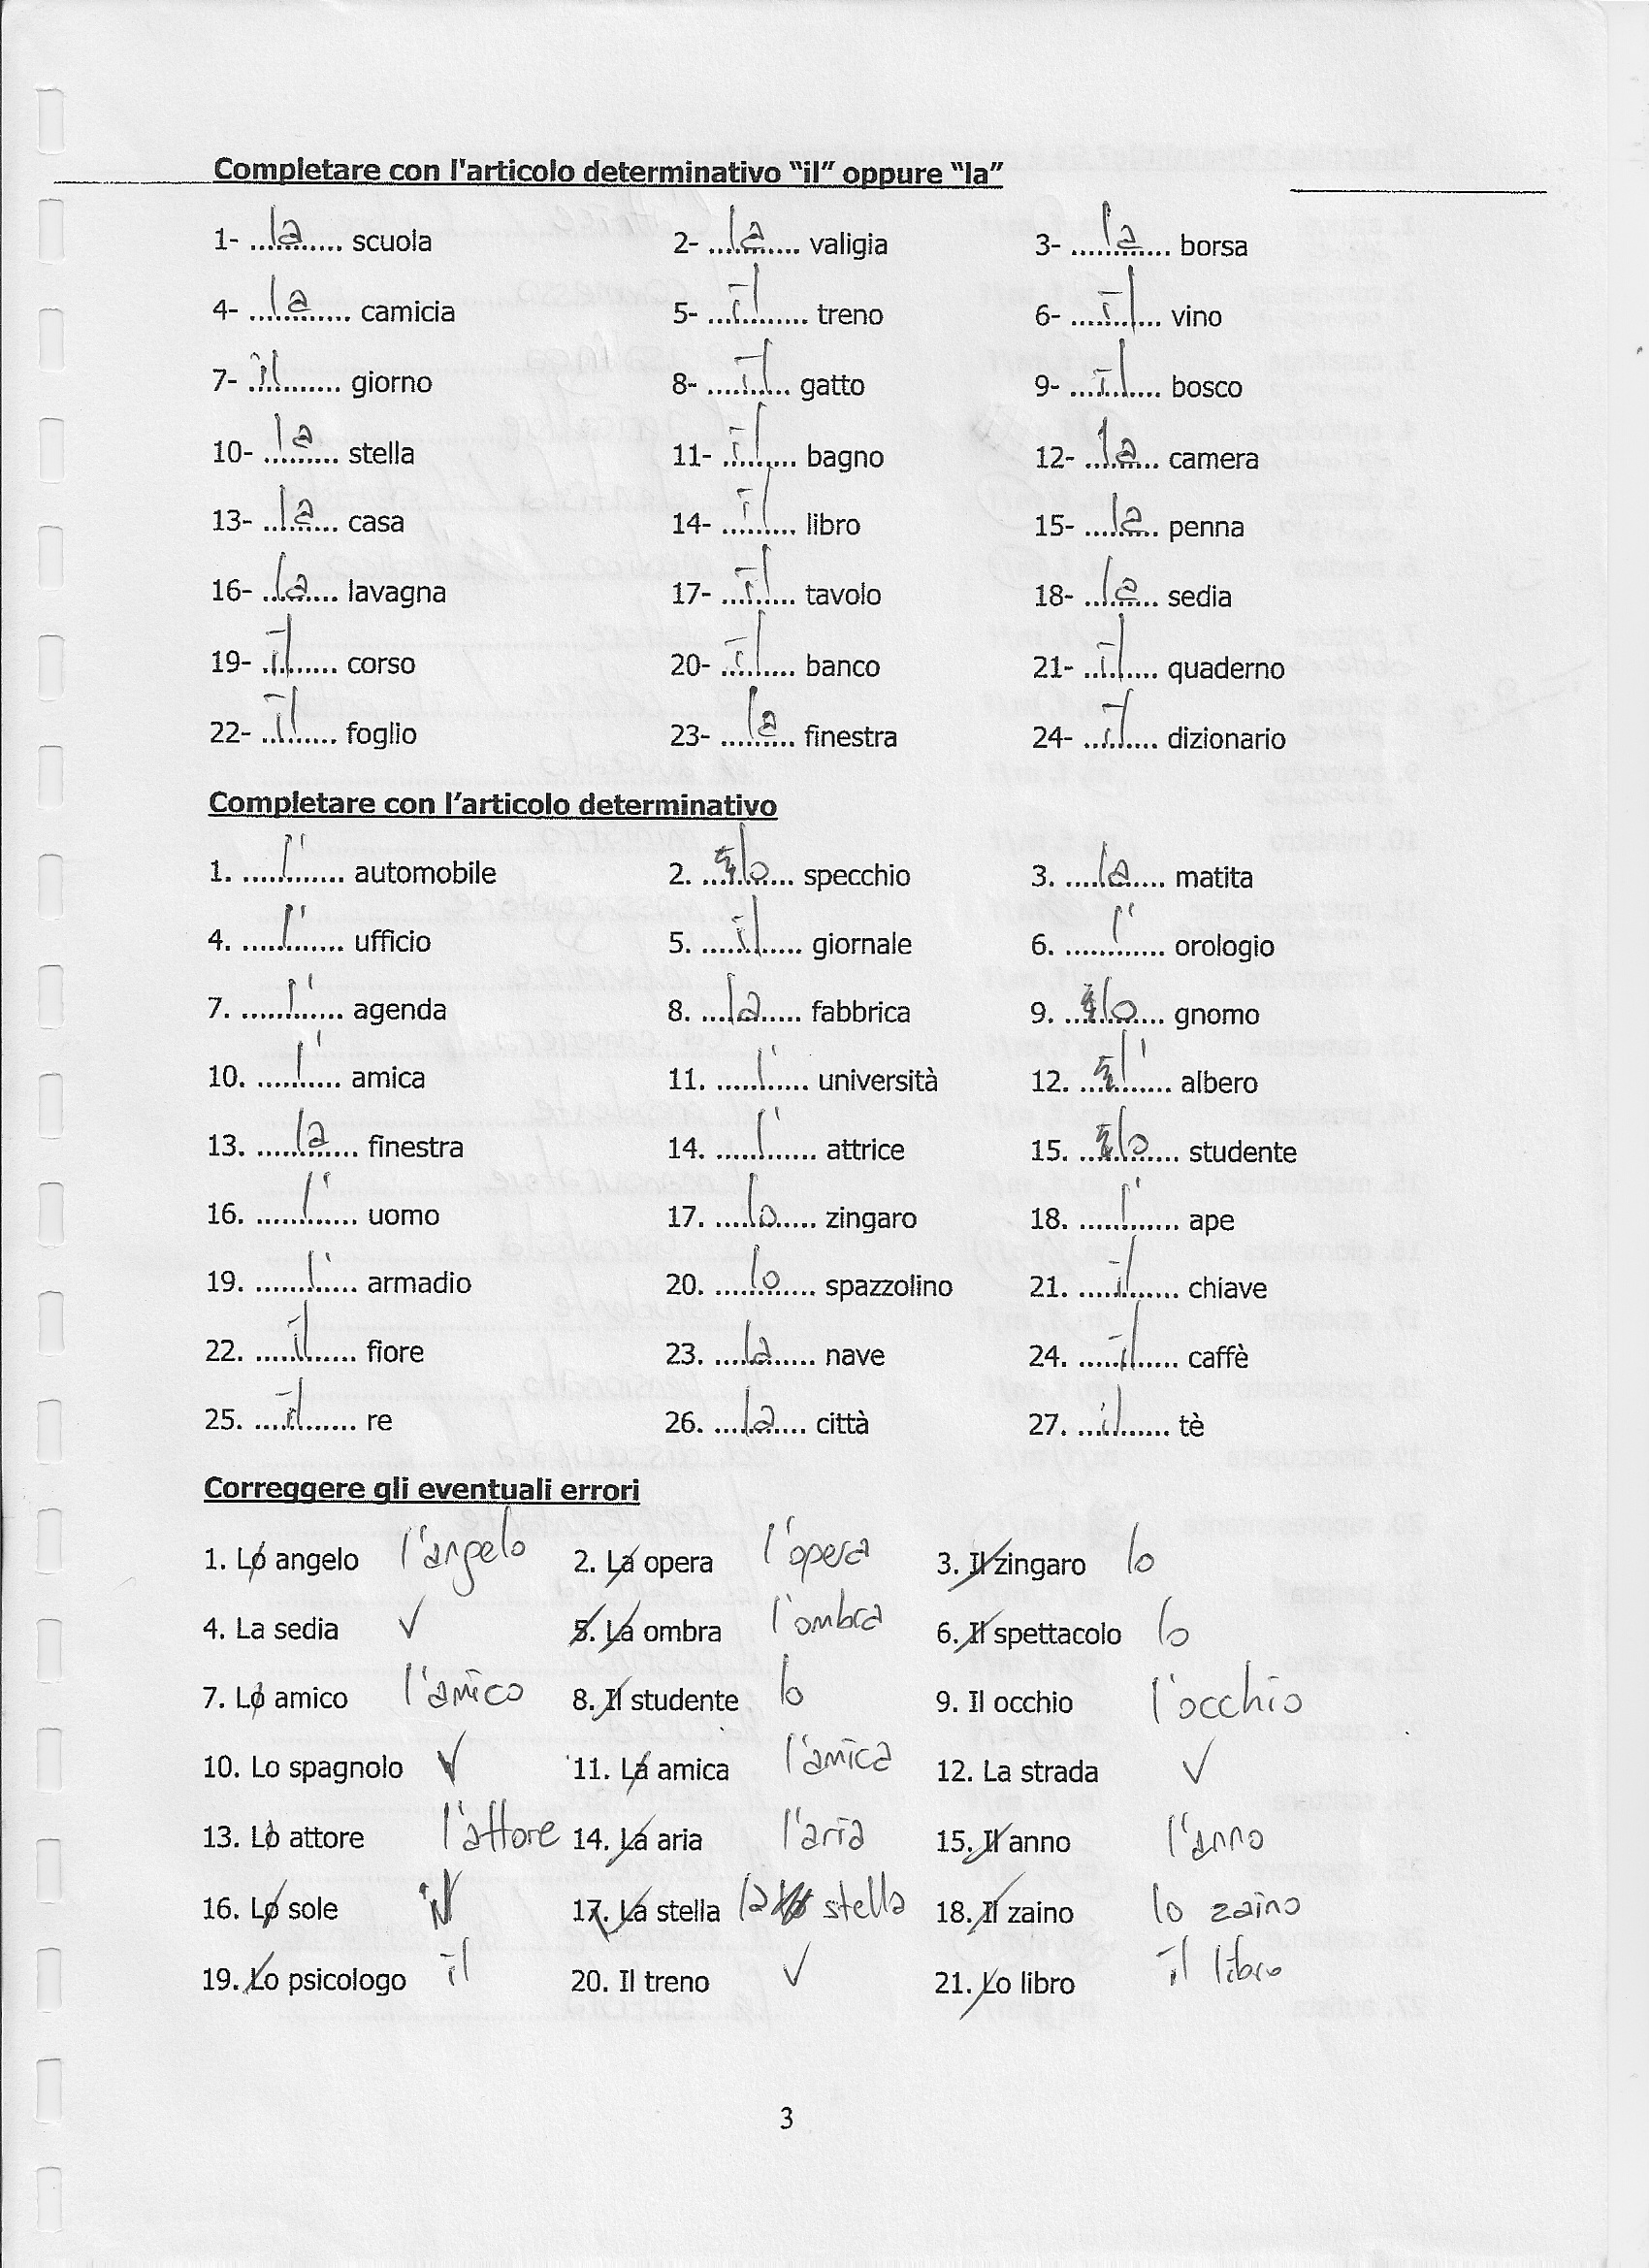 Completare con l'articolo determinativo “il” oppure “la”
1- ...la... scuola 2- ...la... valigia 3- ...la... borsa
4- ...la... camicia 5- ...il... treno 6- ...il... vino
7- ...il... giorno 8- ...il... gatto 9- ...il... bosco
10- ...la... stella 11- ...il... bagno 12- ...la... camera
13- ...la... casa 14- ...il... libro 15- ...la... penna
16- ...la... lavagna 17- ...il... tavolo 18- ...la... sedia
19- ...il... corso 20- ...il... banco 21- ...il... quaderno
22- ...il... foglio 23- ...la... finestra 24- ...il... dizionario
Completare con l’articolo determinativo
1. ...l'... automobile 2. ...lo... specchio 3. ...la... matita
4. ...l'... ufficio 5. ...il... giornale 6. ...l'... orologio
7. ...l'... agenda 8. ...la... fabbrica 9. ...lo... gnomo
10. ...l'... amica 11. ...l'... università 12. ...l'... albero
13. ...la... finestra 14. ...l'... attrice 15. ...lo... studente
16. ...l'... uomo 17. ...lo... zingaro 18. ...l'... ape
19. ...l'... armadio 20. ...lo... spazzolino 21. ...il... chiave
22. ...il... fiore 23. ...la... nave 24. ...il... caffè
25. ...il... re 26. ...la... città 27. ...il... tè
Correggere gli eventuali errori
1. Lo angelo l'angelo 2. La opera l'opera 3. Il zingaro lo
4. La sedia ✓ 5. La ombra l'ombra 6. Il spettacolo lo
7. Lo amico l'amico 8. Il studente lo 9. Il occhio l'occhio
10. Lo spagnolo ✓ 11. La amica l'amica 12. La strada ✓
13. Lo attore l'attore 14. La aria l'aria 15. Il anno l'anno
16. Lo sole il 17. La stella la stella 18. Il zaino lo zaino
19. Lo psicologo il 20. Il treno ✓ 21. Lo libro il libro
3